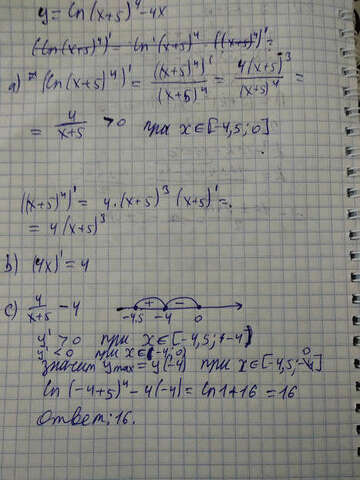 y = ln(x+5)⁴ - 4x
(ln(x+5)⁴)' = ln'(x+5)⁴ · ((x+5)⁴)' =
a) (ln(x+5)⁴)' = ((x+5)⁴)' / (x+5)⁴ = 4(x+5)³ / (x+5)⁴ =
= 4 / (x+5) > 0 при x∈[-4,5; 0]
((x+5)⁴)' = 4·(x+5)³·(x+5)' =
= 4(x+5)³
b) (4x)' = 4
c) 4 / (x+5) - 4
+ −
-4,5 -4 0
y' > 0 при x∈[-4,5; -4)
y' < 0 при x∈(-4; 0)
значит y max = y(-4) при x∈[-4,5; 0]
ln(-4+5)⁴ - 4(-4) = ln1 + 16 = 16
Ответ: 16.